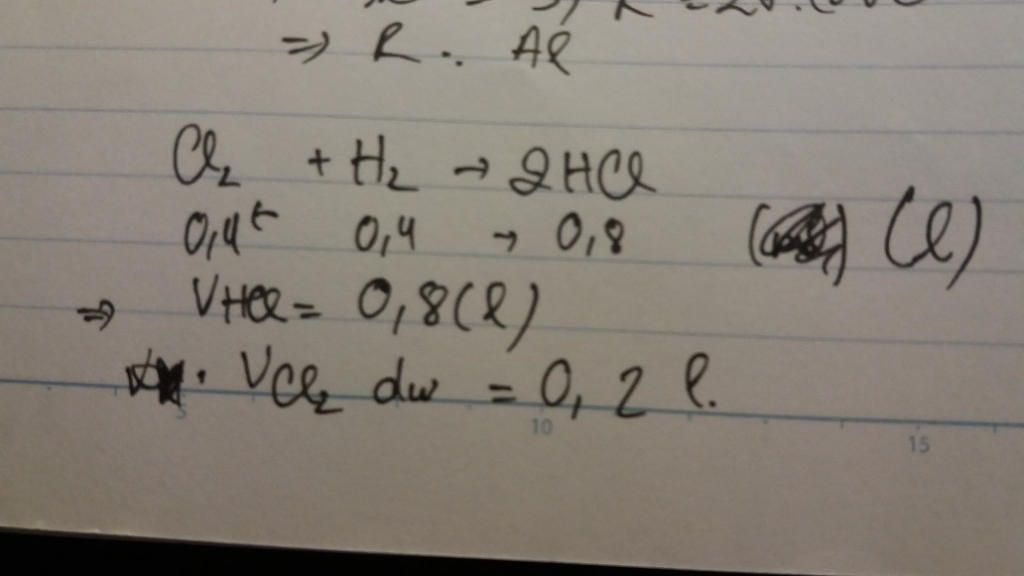 ⇒ R : Al
Cl₂ + H₂ → 2HCl
0,4 ← 0,4 → 0,8 (l)
⇒ VHCl = 0,8(l)
. VCl₂ dư = 0,2 l.
5 10 15